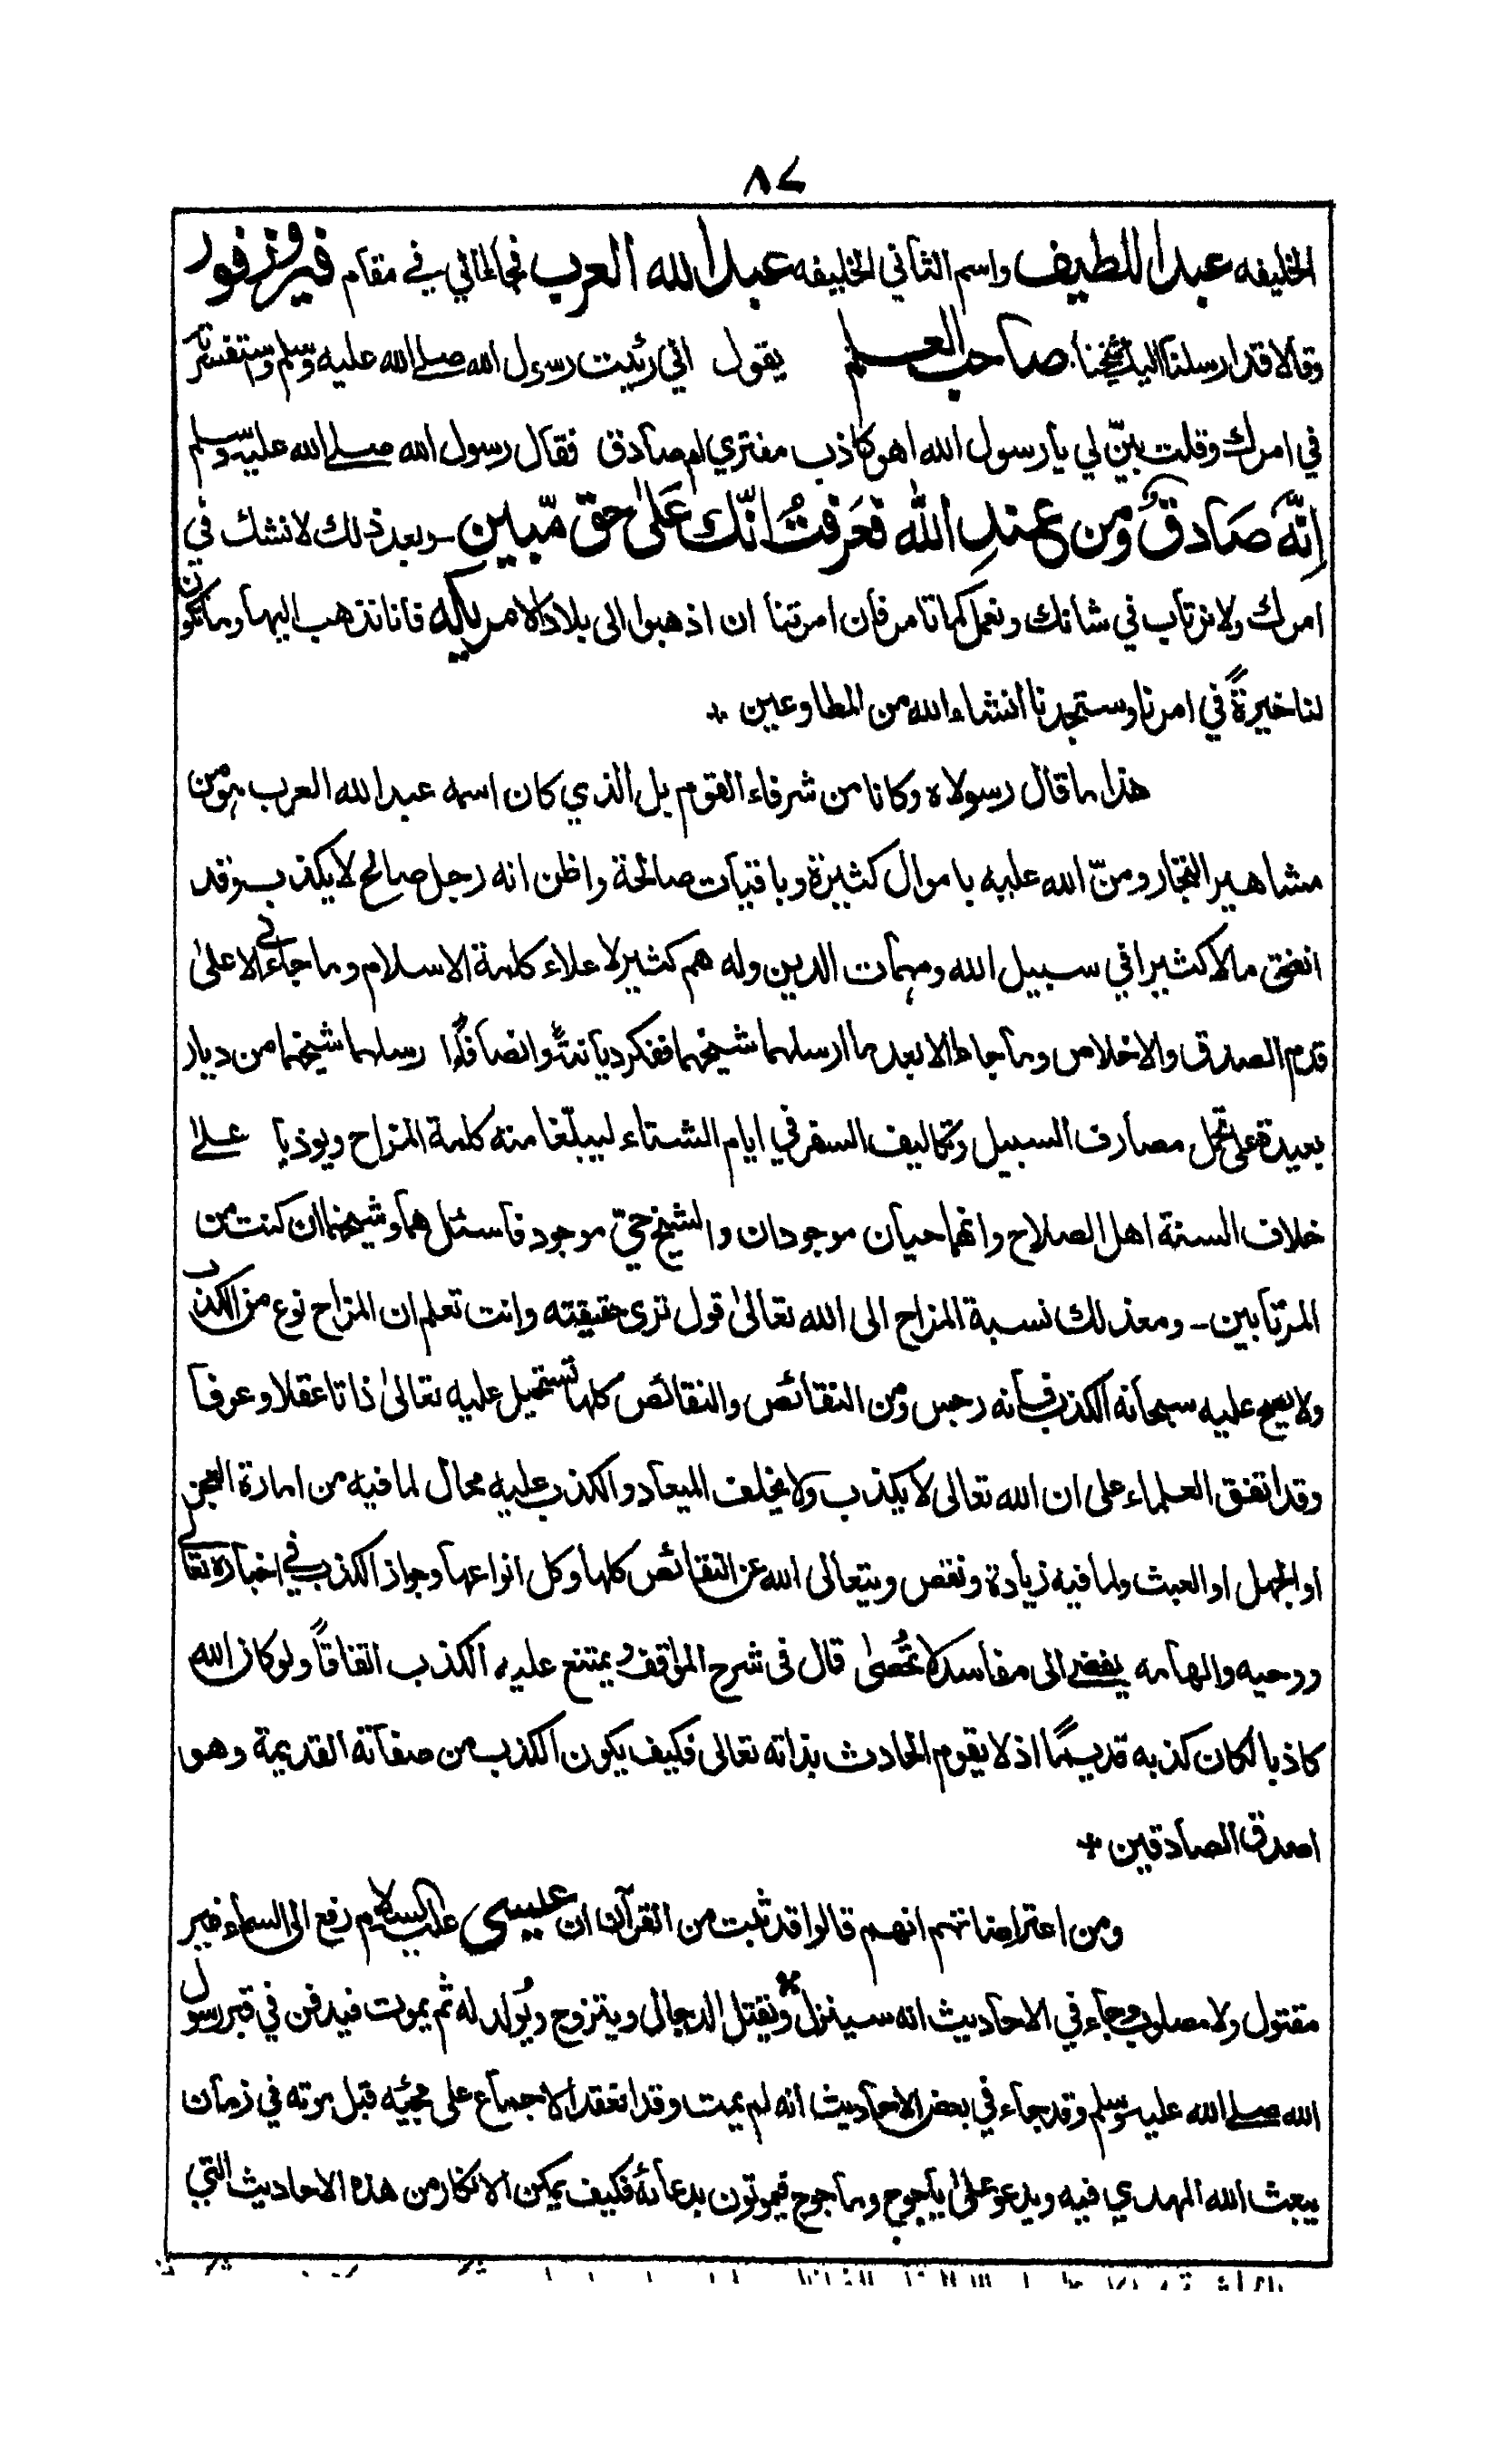 ٨٧
الخليفه عبد اللطيف واسم الثاني الخليفه عبد الله العرب فجاءاني في مقام فيروزفور
وقالا قد ارسلنا اليك شيخنا صاحب العلم يقول اني رئيت رسول الله صلے الله عليه وسلم وستفسرته
في امرك وقلت بيّن لي يا رسول الله اهو كاذب مفتري ام صادق فقال رسول الله صلے الله عليه وسلم
اِنَّهٗ صَادقٌ وَّمن عندِ اللّٰه فعَرفتُ انّك عَلىٰ حق مّبين - وبعد ذلك لا نشك في
امرك ولا نرتاب في شانك ونعمل كما تامر فان امرتنا ان اذهبوا الى بلاد الامريكه فانا نذهب اليها وما تكون
لنا خيرةً في امرنا وستجدنا انشاء الله من المطاوعين +
هذا ما قال رسولاه وكانا من شرفاء القوم بل الذي كان اسمه عبد الله العرب هو من
مشاهير التجار ومنّ الله عليه باموال كثيرة وباقيات صالحة واظن انه رجل صالح لا يكذب وقد
انفق مالا كثيرا في سبيل الله ومهمات الدين وله هم كثير لاعلاء كلمة الاسلام وما جاءني الا على
قدم الصدق والاخلاص وما جاءا الا بعد ما ارسلهما شيخهما ففكر ديانتًا وانصافًا ارسلهما شيخهما من ديار
بعيدة على تحمل مصارف السبيل وتكاليف السفر في ايام الشتاء ليبلّغا منه كلمة المزاح ويوذيا علےٰ
خلاف السنة اهل الصلاح وانهما حيان موجودان والشيخ حيّ موجود فاسئل هما وشيخهما ان كنت من
المرتابين - ومعذلك نسبة المزاح الى الله تعالىٰ قول ترى حقيقته وانت تعلم ان المزاح نوع من الكذب
ولا يصح عليه سبحانه الكذب فانه رجس ومن النقائص والنقائص كلها تستحيل عليه تعالىٰ ذاتا عقلا وعرفا
وقد اتفق العلماء على ان الله تعالى لا يكذب ولا يخلف الميعاد والكذب عليه محال لما فيه من امارة العجز
او الجهل او العبث ولما فيه زيادة ونقص ويتعالى الله عن النقائص كلها وكل انواعها وجواز الكذب في اخباره تعالى
ووحيه والهامه يفضے الى مفاسد لا تُحصىٰ قال فى شرح المواقف ويمتنع عليه الكذب اتفاقاً ولو كان الله
كاذبا لكان كذبه قديمًا اذ لا يقوم الحادث بذاته تعالى فكيف يكون الكذب من صفاته القديمة وهو
اصدق الصادقين +
ومن اعتراضاتهم انهم قالوا قد ثبت من القرآن ان عيسى عليه السلام رفع الى السماء غير
مقتول ولا مصلوب وجاء في الاحاديث انه سينزل ويقتل الدجال ويتزوج ويُولد له ثم يموت فيدفن في قبر رسول
الله صلے الله عليه وسلم وقد جاء في بعض الاحاديث انه لم يمت وقد انعقد الاجماع على مجيئه قبل موته في زمان
يبعث الله المهدي فيه ويدعو علىٰ ياجوج وماجوج فيموتون بدعائه فكيف يمكن الانكار من هذه الاحاديث التي